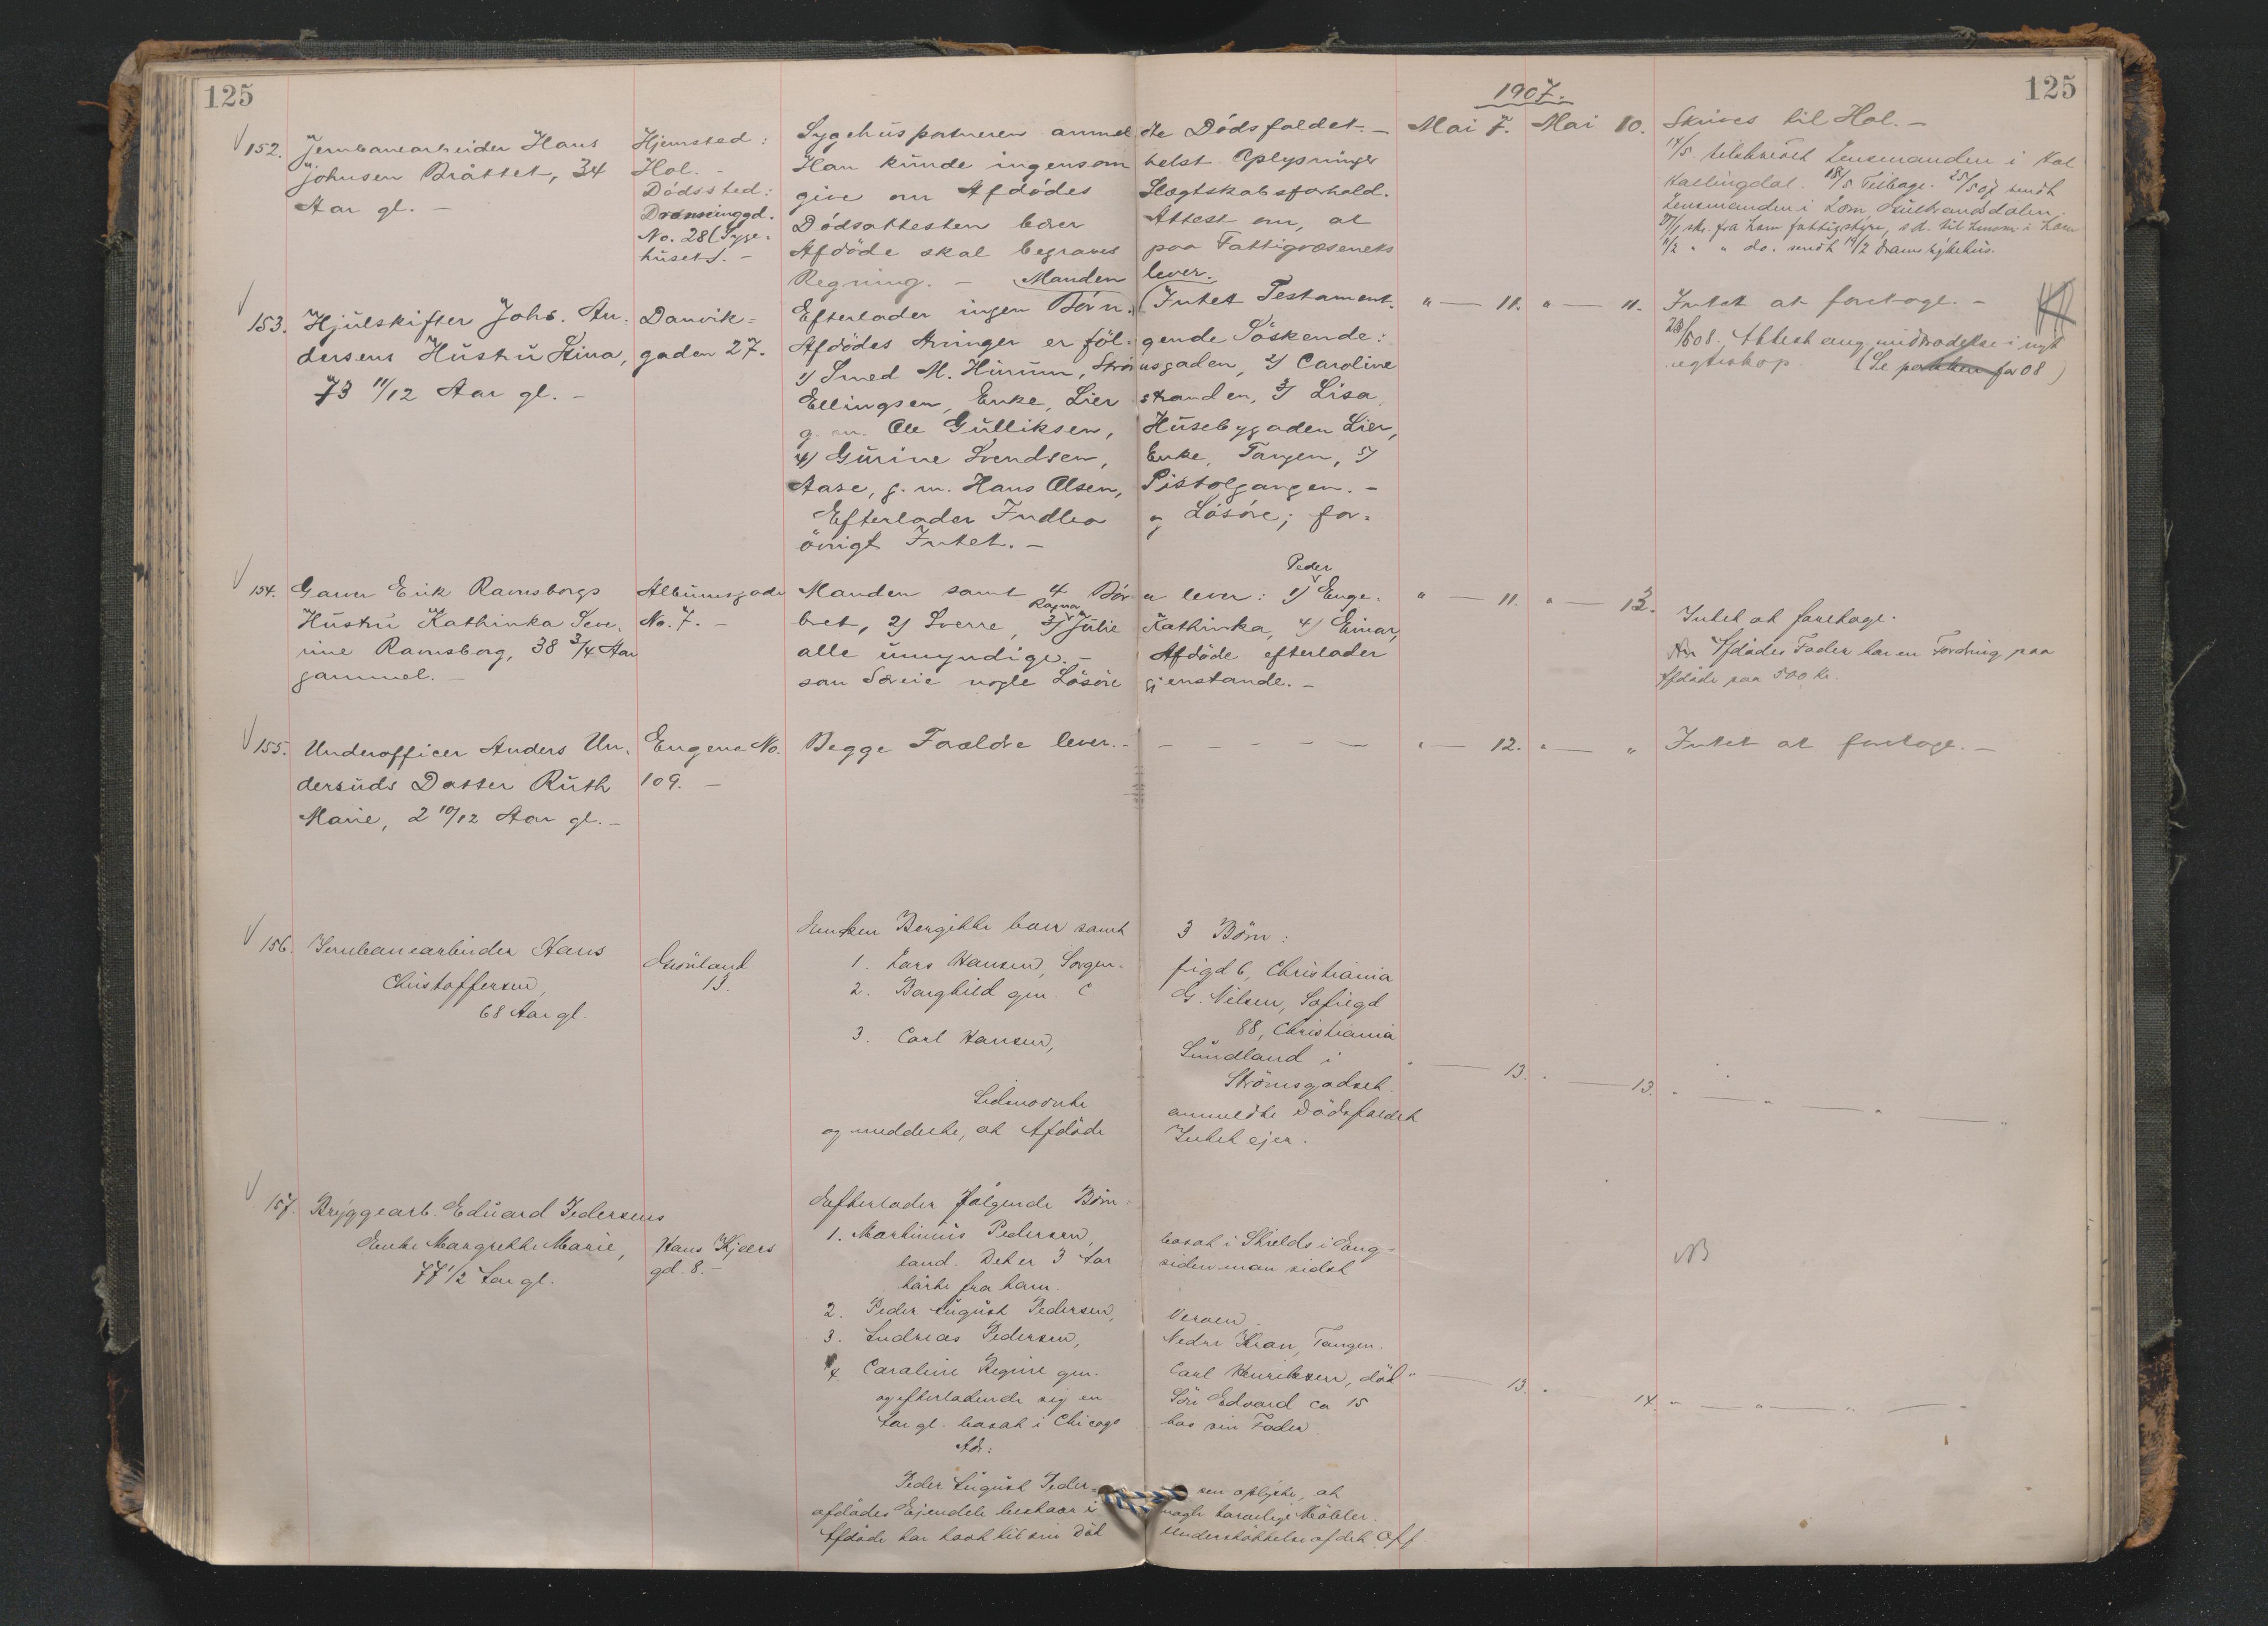 125
125
1907.
152. Jernbanearbeider Hans
Johnsen Bråttet, 34
Aar gl. –
Hjemsted:
Hol. –
Dödssted:
No. 28 (Syge-
huset). –
Sygehusportneren anmeldte Dödsfaldet. –
Han kunde ingensomhelst Oplysninger
give om Afdödes Slægtskabsforhold.
Dödsattesten bærer Attest om, at
Afdöde skal begraves paa Fattigvæsenets
Regning. –
Mai 7. Mai 10.
Skrives til Hol. –
14/5 Lensmanden i Hol
Hallingdal. 18/5 Tilbage. 25/5 07 sendt
Lensmanden i Lom Gulbrandsdalen.
153. Hjulskifter Johs. An-
dersens Hustru Stina,
73 11/12 Aar gl. –
Danvik-
gaden 27.
Manden lever.
Efterlader ingen Börn. (Intet Testament.
Afdödes Arvinger er föl-gende Söskende:
1) Smed M. Hurum, Strömsgaden, 2) Caroline
Ellingsen, Enke, Lierstranden, 3) Lisa,
g. m. Ole Gulliksen, Husebygaden Lier,
4) Gurine Svendsen, Enke, Tangen, 5)
Aase, g. m. Hans Olsen, Pistolgangen. –
Efterlader Indbo og Lösöre; for-
övrigt Intet. –
" — 11. " — 11.
Intet at foretage. –
Attest ang. i nyt
egteskap. (Se pakken for 08)
154. Garver Erik Ramsborgs
Hustru Kathinka Seve-
rine Ramsborg, 38 3/4 Aar
gammel. –
Albumsgade
No. 7. –
Peder
Manden samt 4 Börn lever: 1) Enge-
Ragna
bret, 2) Sverre, 3) Julie Kathinka, 4) Einar,
alle umyndige. – Afdöde efterlader
som Særeie nogle Lösöregjenstande. –
" — 11. " — 13.
Intet at foretage.
Afdödes Fader har en Fordring paa
Afdöde paa 500 Kr.
155. Underofficer Anders Un-
dersuds Datter Ruth
Marie, 2 10/12 Aar gl. –
Eugene No.
109. –
Begge Forældre lever. – – – – – –
" — 12. " — "
Intet at foretage. –
156. Jernbanearbeider Hans
Christoffersen,
68 Aar gl.
Grönland
13.
Enken Bergitte lever samt 3 Börn:
1. Lars Hansen, Sorgenfrigd 6, Christiania
2. Borghild gm. C. G. Nilsen, Sofiegd
88, Christiania
3. Carl Hansen, Sundland i
Strömsgodset.
Sidnævnte anmeldte Dödsfaldet
og meddelte, at Afdöde Intet ejer.
" — 13. " — 13. " — " — " — "
157. Bryggearb. Eduard Pedersens
Enke Margrethe Marie,
77 1/2 Aar gl.
Hans Kjærs
gd. 8. –
Efterlader fölgende Börn:
1. Martinius Pedersen, bosat i Shields i Eng-
land. Det er 3 Aar siden man sidst
hörte fra ham.
2. Peder August Pedersen, Verven.
3. Andreas Pedersen, Nedre Kran, Tangen.
4. Caroline Regine gm. Carl Henriksen, död
og efterladende sig en Sön Edvard ca 15
Aar gl. bosat i Chicago hos sin Fader.
Adr:
Peder August Peder-sen oplyste, at
afdödes Ejendele bestaar i nogle tarvelige Möbler.
Afdöde har havt til sin Död Understöttelse af det Off.
" — 13. " — 14. " — " — " — "
NB